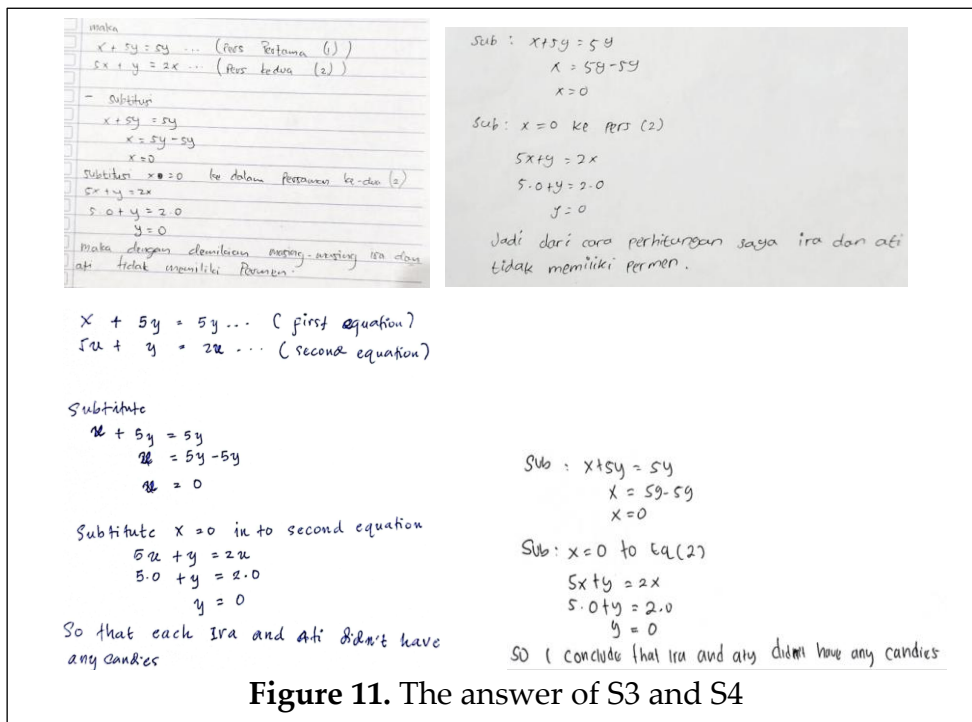 maka
x + 5y = 5y ... (Pers Pertama (1))
5x + y = 2x ... (Pers kedua (2))
- Subtitusi
x + 5y = 5y
x = 5y - 5y
x = 0
Subtitusi x = 0 ke dalam Persamaan ke-dua (2)
5x + y = 2x
5.0 + y = 2.0
y = 0
maka dengan demikian masing-masing ira dan
ati tidak memiliki Permen.
Sub : x+5y = 5y
x = 5y-5y
x = 0
Sub : x = 0 ke Pers (2)
5x+y = 2x
5.0+y = 2.0
y = 0
Jadi dari cara perhitungan saya ira dan ati
tidak memiliki permen.
x + 5y = 5y ... (first equation)
5x + y = 2x ... (second equation)
Substitute
x + 5y = 5y
x = 5y - 5y
x = 0
Subtitute x = 0 in to second equation
5x + y = 2x
5.0 + y = 2.0
y = 0
So that each Ira and Ati didn't have
any candies
Sub : x+5y = 5y
x = 5y-5y
x = 0
Sub : x = 0 to Eq (2)
5x+y = 2x
5.0+y = 2.0
y = 0
SO I conclude that Ira and aty didn't have any candies
Figure 11. The answer of S3 and S4